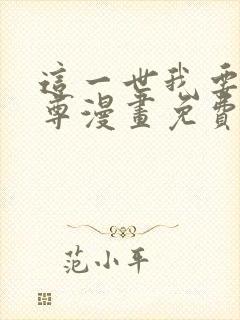 這一世我要
尊漫畫免費
范小平